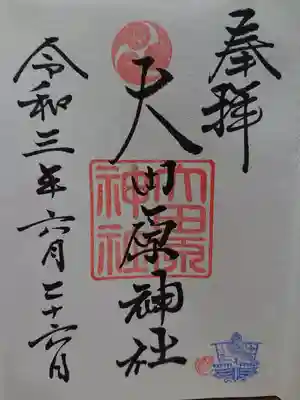 奉拝
大田原神社
大田原
神社
令和三年六月二十六日